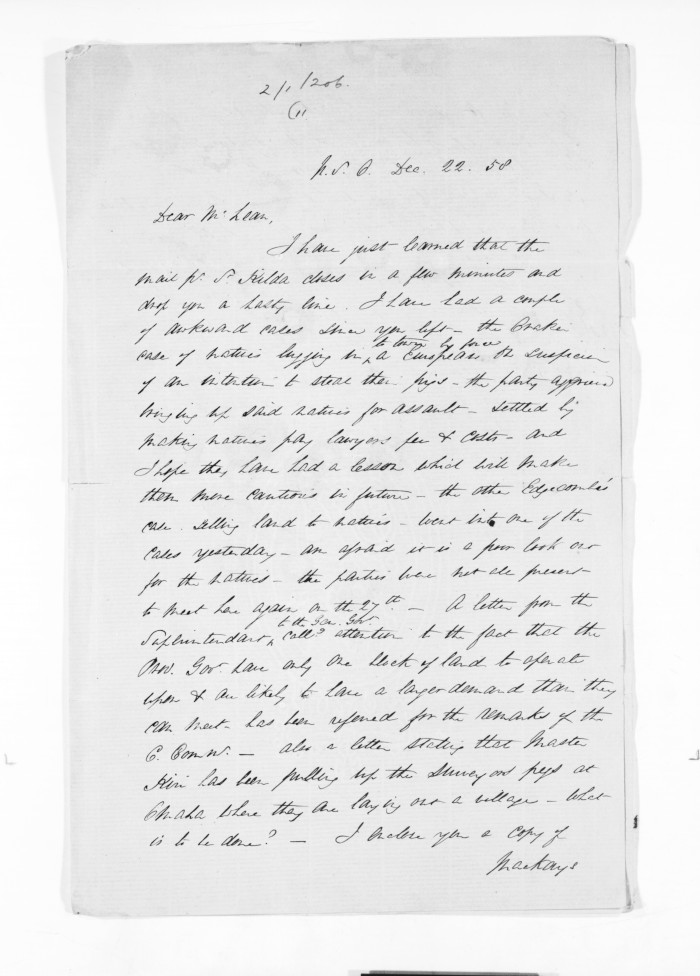 2/1/206.
(11
N. S. O. Dec. 22. 58
Dear McLean,
I have just learned that the
mail pr. St. Kilda closes in a few minutes and
drop you a hasty line. I have had a couple
of awkward cases since you left - the Orakei
case of natives lugging in to town by force a European on suspicion
of an intention to steal their pigs - the party aggrieved
bringing up said natives for assault - settled by
making natives pay lawyers fee & costs - and
I hope they have had a lesson which will make
them more cautious in future - the other Edgecombe's
case. Selling land to natives - went into one of the
cases yesterday - am afraid it is a poor look out
for the natives - the parties were not all present
to meet here again on the 27th - A letter from the
Superintendant, to the Gen. Govt. callg attention to the fact that the
Prov. Govt. have only one block of land to operate
upon & are likely to have a larger demand than they
can meet - has been referred for the remarks of the
C. Commr. - also a letter stating that Master
Kiri has been pulling up the Surveyors pegs at
Omaha where they are laying out a village - what
is to be done? - I enclose you a copy of
Mackays